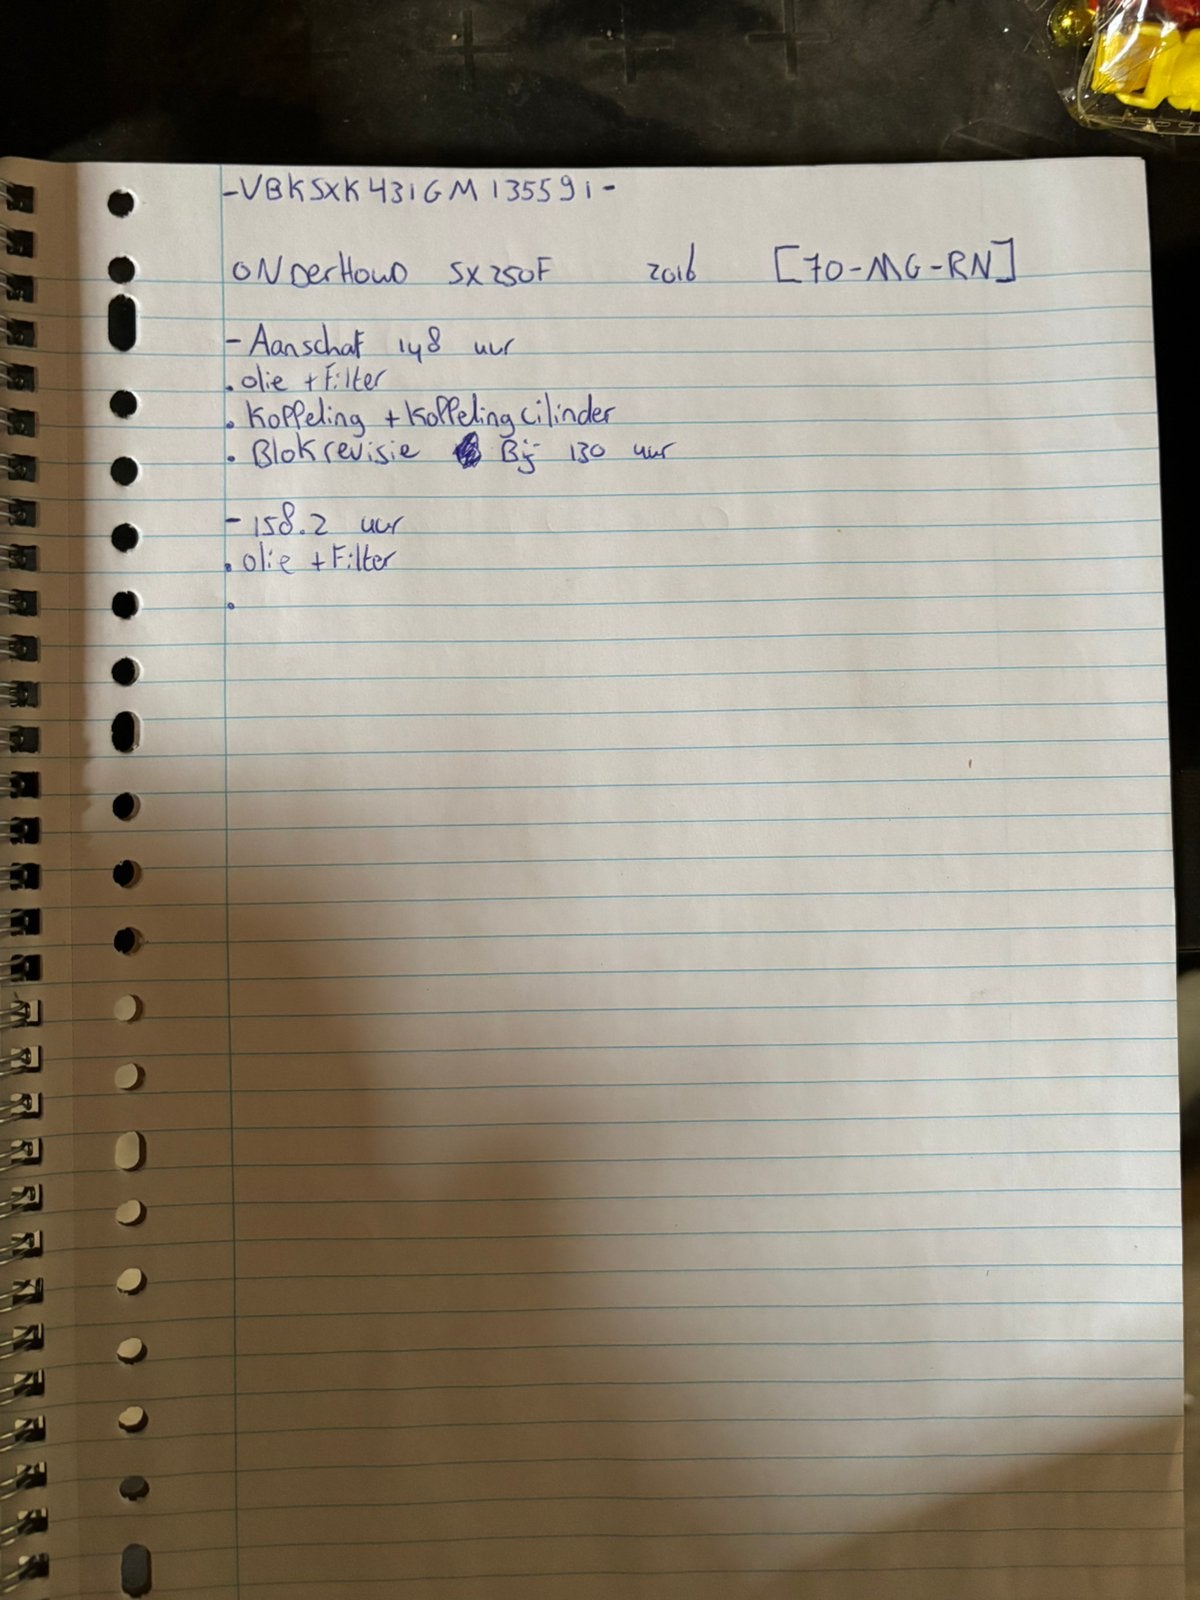 -VBKSXK431GM135591-
ONDerHoud SX250F 2016 [70-MG-RN]
- Aanschaf 148 uur
. olie + Filter
. Koppeling + Koppelingcilinder
. Blokrevisie Bij 130 uur
- 158.2 uur
. olie + Filter
.